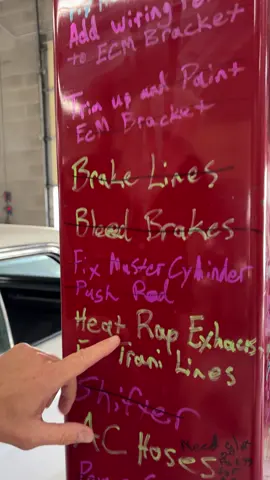 Add wiring for
to ECM Bracket
Trim up and Paint
ECM Bracket
Brake Lines
Bleed Brakes
Fix Master Cylinder
Push Rod
Heat Rap Exhaus
Trani Lines
Shifter
AC Hoses
need